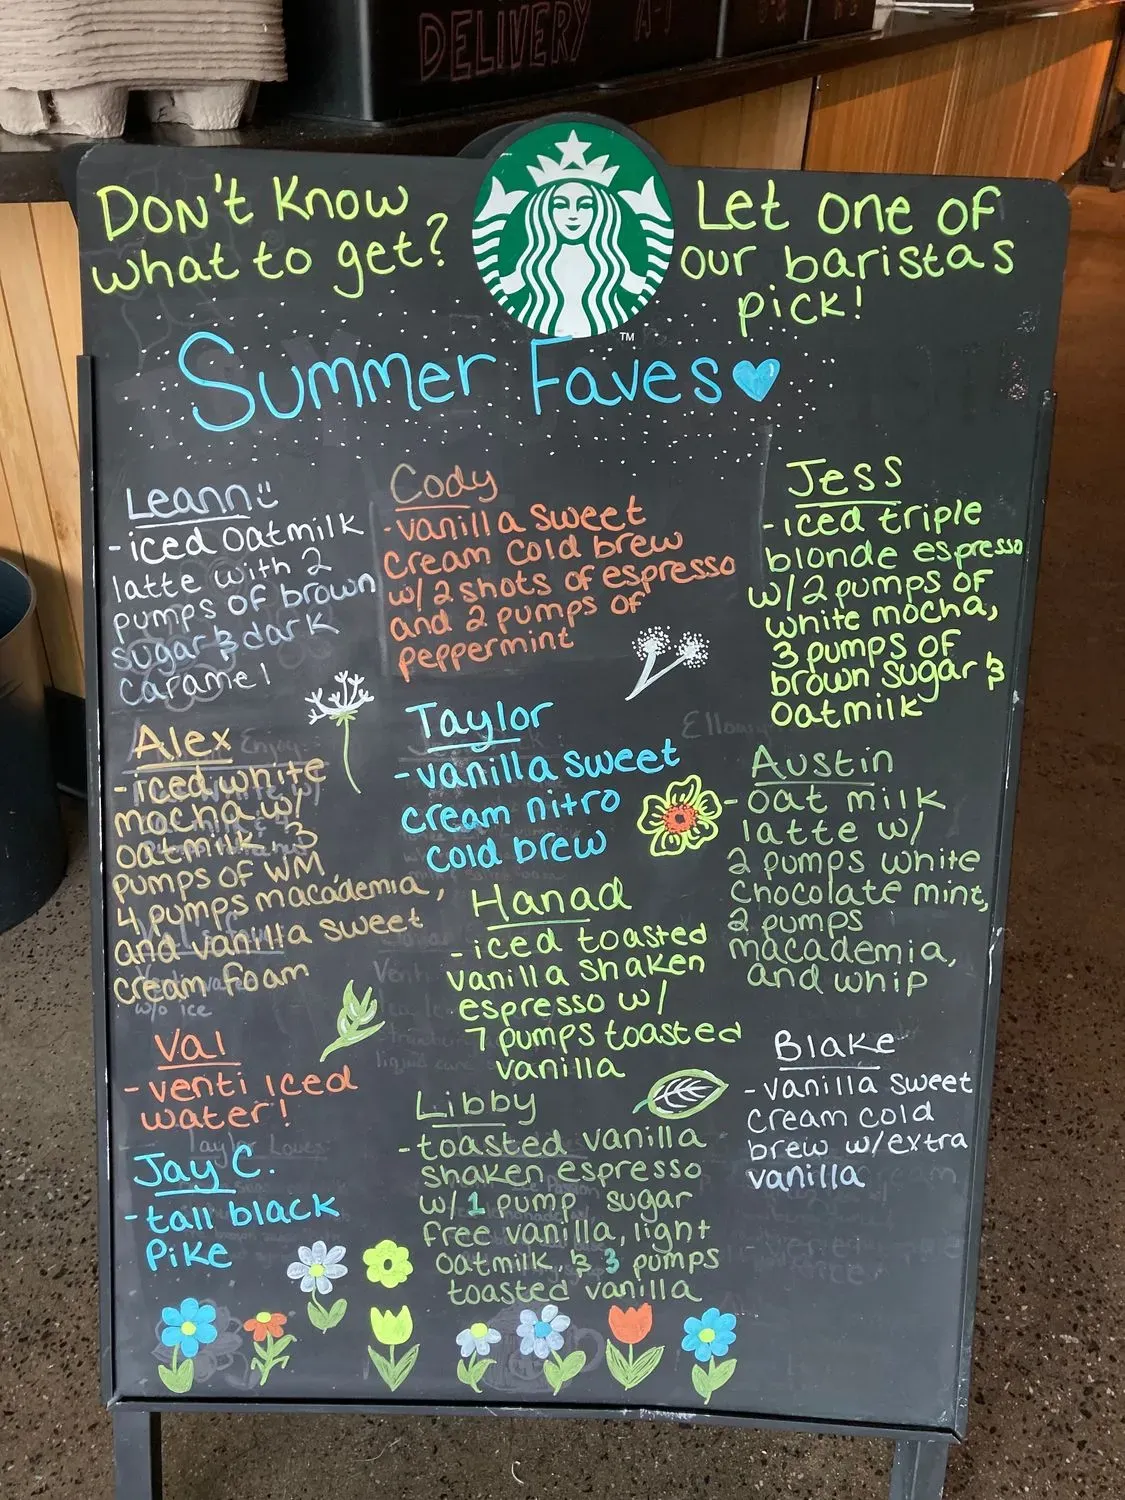 DELIVERY
Don't Know
what to get?
Let one of
our baristas
pick!
TM
Summer Faves
Leann
-iced oatmilk
latte with 2
pumps of brown
sugar & dark
caramel
Cody
-vanilla sweet
cream cold brew
w/2 shots of espresso
and 2 pumps of
peppermint
Jess
-iced triple
blonde espresso
w/2 pumps of
white mocha,
3 pumps of
brown sugar &
oatmilk
Alex
-iced white
mocha w/
oatmilk, 3
pumps of WM
4 pumps macademia,
and vanilla sweet
cream foam
Taylor
-vanilla sweet
cream nitro
cold brew
Austin
-oat milk
latte w/
2 pumps white
chocolate mint,
2 pumps
macademia,
and whip
Hanad
-iced toasted
vanilla shaken
espresso w/
7 pumps toasted
vanilla
Val
-venti iced
water!
Blake
-vanilla sweet
cream cold
brew w/extra
vanilla
Libby
-toasted vanilla
shaken espresso
w/ 1 pump sugar
free vanilla, light
oatmilk, & 3 pumps
toasted vanilla
Jay C.
-tall black
Pike
Enjoy
w/o ice
Taylor Loves